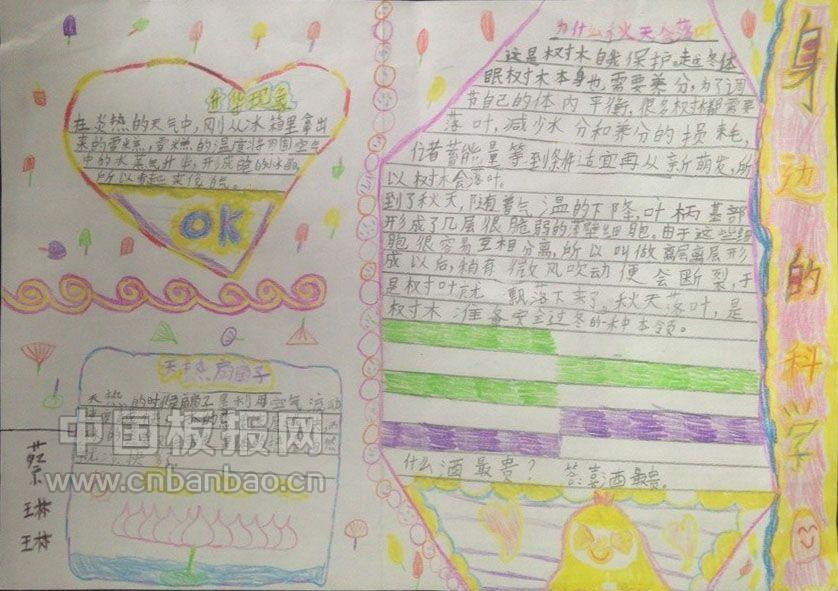 身边的科学
为什么秋天会落叶
这是树木自我保护,走过冬休
眠树木本身也需要养分,为了调
节自己的体内平衡,很多树木都需要
落叶,减少水分和养分的损耗,
储蓄能量等到条件适宜再从新萌发,所
以树木会落叶。
到了秋天,随着气温的下降,叶柄基部
形成了几层很脆弱的薄壁细胞。由于这些细
胞很容易互相分离,所以叫做离层离层形
成以后,稍有微风吹动便会断裂,于
是树叶就飘落下来了。秋天落叶,是
树木准备安全过冬的一种本领。
什么酒最贵?
升华现象
在炎热的天气中,刚从冰箱里拿出
来的雪糕,雪糕的温度将周围空气
中的水蒸气升华,形成
所以看起来像
OK
天热扇扇子
天热的时候扇子是利用空气流动
中国板报网
www.cnbanbao.cn
蔡
琳
琳